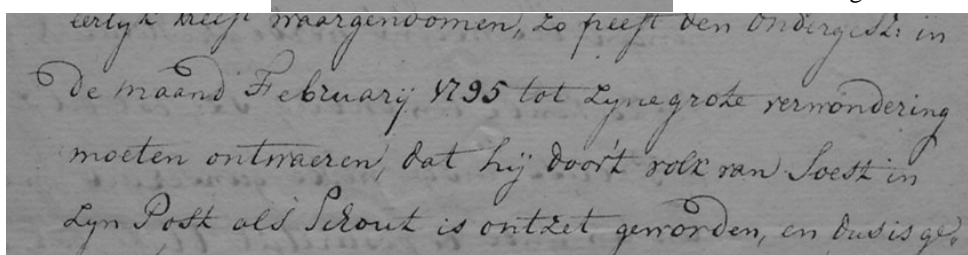 eerlyk heeft waargenoomen, zo heeft den Ondergest: in
de maand Februarij 1795 tot zyne grote verwondering
moeten ontwaeren, dat hij door't volk van Soest in
zyn Post als Schout is ontzet geworden, en dus is ge,